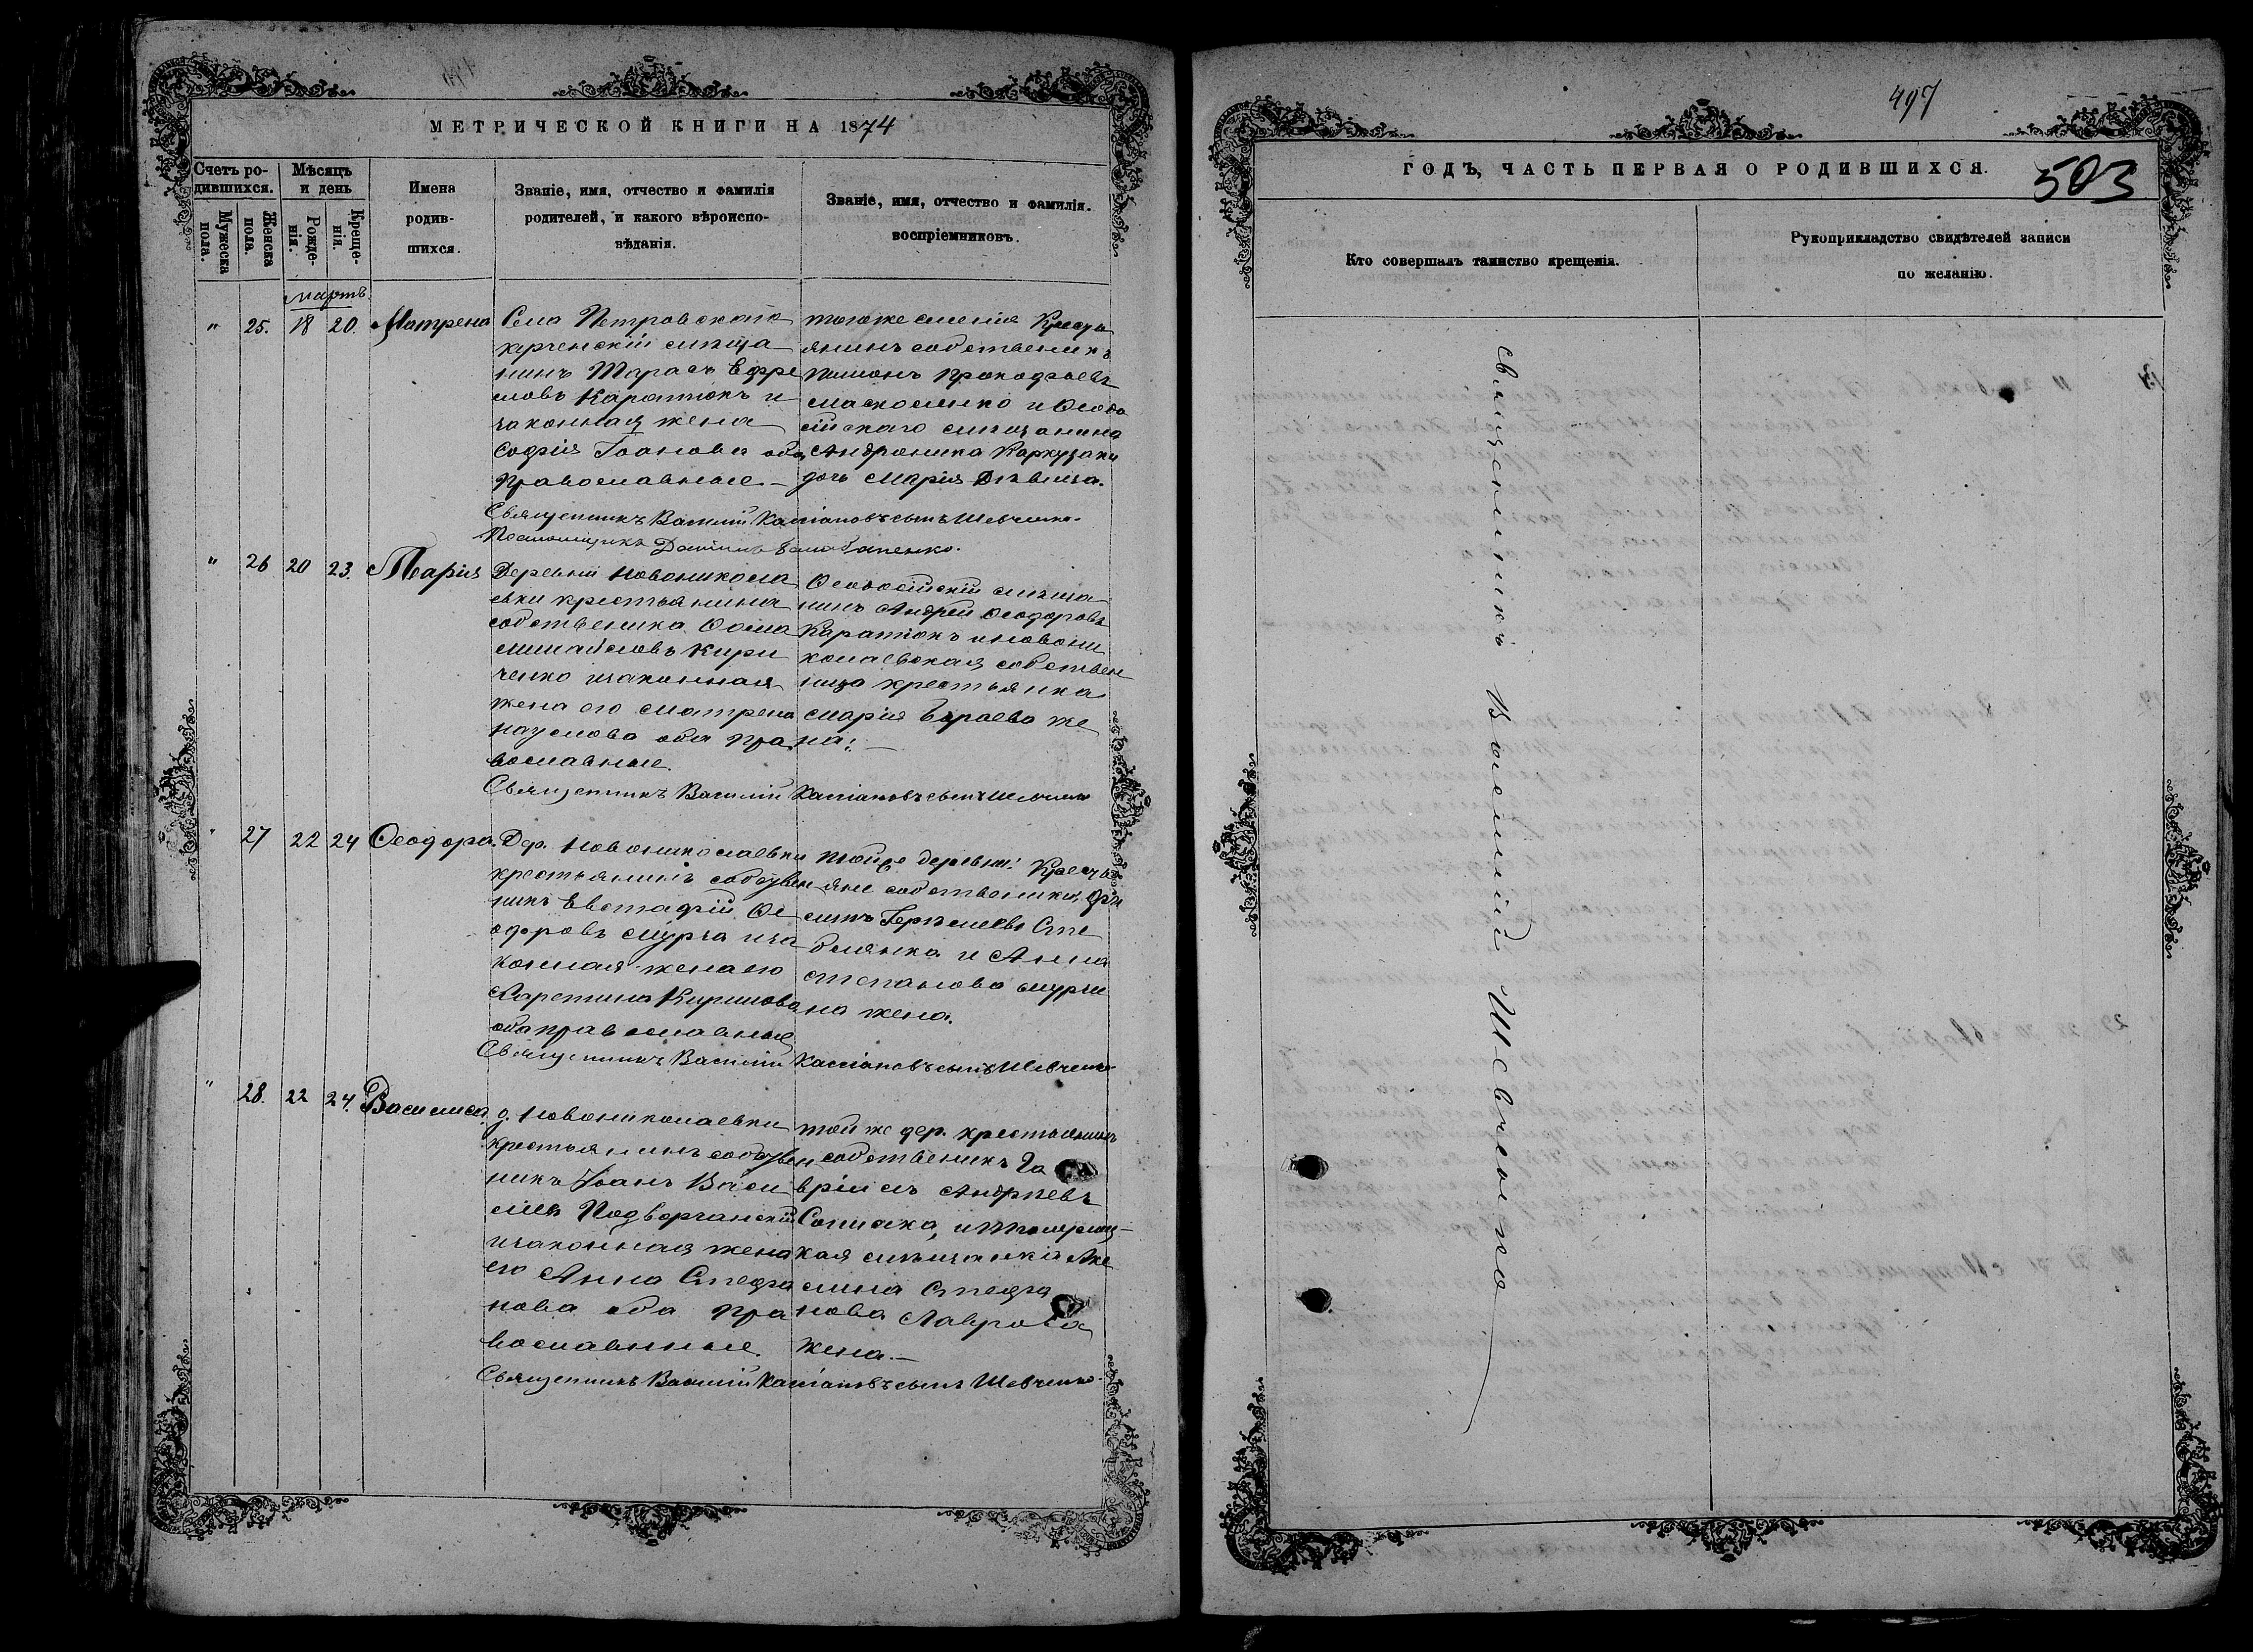 МЕТРИЧЕСКОЙ КНИГИ НА 1874
Счетъ ро-
дившихся.
Мужеска
пола.
Женска
пола.
Мѣсяцъ
и день
Рожде-
нія.
Креще-
нія.
Имена
родив-
шихся.
Званіе, имя, отчество и фамилія
родителей, и какого вѣроиспо-
вѣданія.
Званіе, имя, отчество и фамилія.
воспріемниковъ.
мартъ
" 25. 18 20. Матрена
Села Петровскаго
керченскій мѣща
нинъ Тарасъ Ефре
мовъ Каратюкъ и
законная жена
Софія Іоанова оба
православные.
тогоже имения Кресть
янинъ собственикъ
Прокофьевъ
и Ѳеодо
сійскаго мѣщанина
Андроника
дочь Марія Дѣвица.
Священникъ Василій Кассіановъ сынъ Шевченко.
" 26 20 23. Марія
Деревни Новоникола
евки крестьянина
собственика Ѳома
Михайловъ Кири
ченко изаконная
жена его Матрена
Наумова оба пра
вославные.
Ѳеодосійскій мѣща
нинъ Андрей Ѳеодоровъ
Каратюкъ иновони
колаевская собствен
ница крестьянка
Марія же
на:
Священникъ Василій Кассіановъ сынъ Шевченко
" 27 22 24 Ѳеодора.
Дер. Новониколаевки
крестьянинъ собствен
никъ Евстафій Ѳе
одоровъ Мурза иза
конная жена его
Кирилова
оба православные
тойже деревни: Кресть
яне собственики,
Сте
блянка и Анна
Степанова Мурзи
на жена.
Священникъ Василій Кассіановъ сынъ Шевченко
" 28. 22 24. Василиса
д. Новониколаевки
крестьянинъ собствен
никъ Іоанъ Васи
лiевъ
изаконная жена
его Анна Стефа
нова оба пра
вославные.
той же дер. крестьянинъ
собственикъ Га
вріилъ Андрѣевъ
кая мѣщанка Аке
лина Стефа
нова Лаврова
жена.
Священникъ Василій Кассіановъ сынъ Шевченко.
497
ГОДЪ, ЧАСТЬ ПЕРВАЯ О РОДИВШИХСЯ.
503
Кто совершалъ таинство крещенія.
Рукоприкладство свидѣтелей записи
по желанію.
Священникъ Василій Шевченко